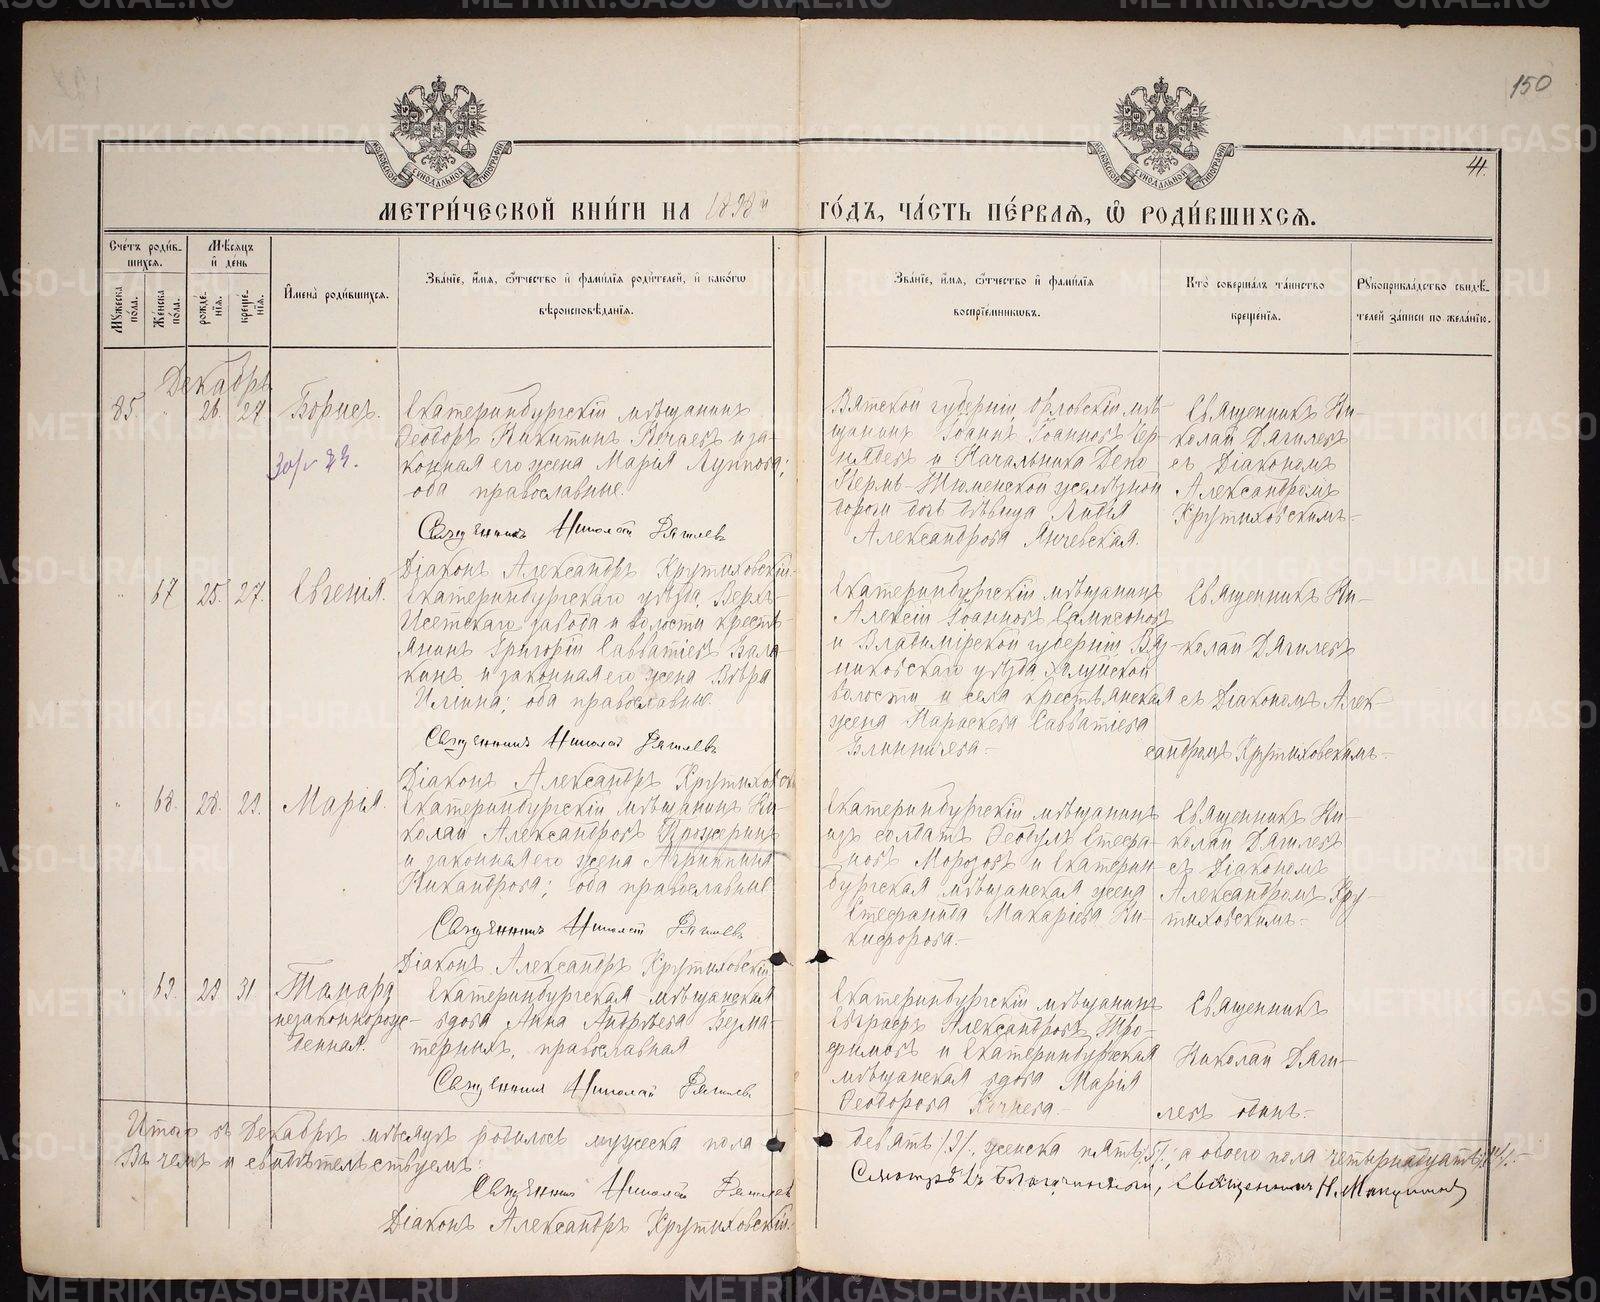 150
41.
МОСКОВСКОЙ СѴНОДАЛЬНОЙ ТИПОГРАФІИ
МОСКОВСКОЙ СѴНОДАЛЬНОЙ ТИПОГРАФІИ
МЕТРИ́ЧЕСКОЙ КНИ́ГИ НА 1898й ГО́ДЪ, ЧА́СТЬ ПЕ́РВАѦ, Ѡ РОДИ́ВШИХСѦ.
Сче́тъ роди́в-
шихсѧ.
Мꙋжеска по́ла.
Же́нска по́ла.
Мѣ́сѧцъ
и́ де́нь
рожде́-
нїѧ.
креще́-
нїѧ.
И҆мена̀ роди́вшихсѧ.
Зва́нїе, и҆́мѧ, ѻ҆́тчество и҆ фами́лїѧ роди́телей, и҆ како́гѡ
вѣроисповѣ́данїѧ.
Зва́нїе, и҆́мѧ, ѻ҆́тчество и҆ фами́лїѧ
воспрїе́мникѡвъ.
Кто̀ соверша́лъ та́инство
креще́нїѧ.
Рꙋкоприкла́дство свидѣ́-
телей за́писи по жела́нїю.
Декабрь
85. " 26. 27 Борисъ.
Екатеринбургскій мѣщанинъ
Ѳеодоръ Никитинъ и за-
конная его жена Марія
оба православные.
Священникъ Николай Дягилевъ
Діаконъ Александръ Крутиховскій.
Вятской губерніи, Орловскій мѣ-
щанинъ Іоаннъ Іоанновъ Чер-
нядевъ и Начальника Депо
Пермь-Тюменской желѣзной
дороги дочь дѣвица Лидія
Александрова Янчевская.
Священникъ Ни-
колай Дягилевъ
съ Діакономъ
Александромъ
Крутиховскимъ.
" 67 25. 27. Евгенія.
Екатеринбургскаго уѣзда, Верхъ-
Исетскаго завода и волости кресть-
янинъ Григорій Савватіевъ Бала-
кинъ и законная его жена Вѣра
Иліина; оба православные.
Священникъ Николай Дягилевъ
Діаконъ Александръ Крутиховскій
Екатеринбургскій мѣщанинъ
Алексій Іоанновъ Самсоновъ
и Владимірской губерніи Вяз-
никовскаго уѣзда, Холуйской
волости и села крестьянская
жена Параскева Савватіева
Блинничева.
Священникъ Ни-
колай Дягилевъ
съ Діакономъ Алек-
сандромъ Крутиховскимъ.
" 68. 28. 29. Марія.
Екатеринбургскій мѣщанинъ Ни-
колай Александровъ
и законная его жена Агриппина
Никандрова; оба православные.
Священникъ Николай Дягилевъ
Діаконъ Александръ Крутиховскій
Екатеринбургскій мѣщанинъ
изъ солдатъ Ѳеодулъ Стефа-
новъ Морозовъ и Екатерин-
бургская мѣщанская жена
Стефанида Макаріева Ни-
кифорова.
Священникъ Ни-
колай Дягилевъ
съ Діакономъ
Александромъ Кру-
тиховскимъ.
" 69. 29 31
незаконорож-
денная.
Екатеринбургская мѣщанская
вдова Анна Андреева Безма-
терныхъ, православная
Священникъ Николай Дягилевъ
Екатеринбургскій мѣщанинъ
Евграфъ Александровъ Тро-
фимовъ и Екатеринбургская
мѣщанская вдова Марія
Ѳеодорова Кочнева.
Священникъ
Николай Дяги-
левъ одинъ.
Итого въ Декабрѣ мѣсяцѣ родилось мужеска пола девять /9/, женска пять /5/, а обоего пола четырнадцать /14/.
Въ чемъ и свидѣтельствуемъ:
Священникъ Николай Дягилевъ
Діаконъ Александръ Крутиховскій.
Смотрѣлъ Благочинный, священникъ Н.
METRIKI.GASO-URAL.RU